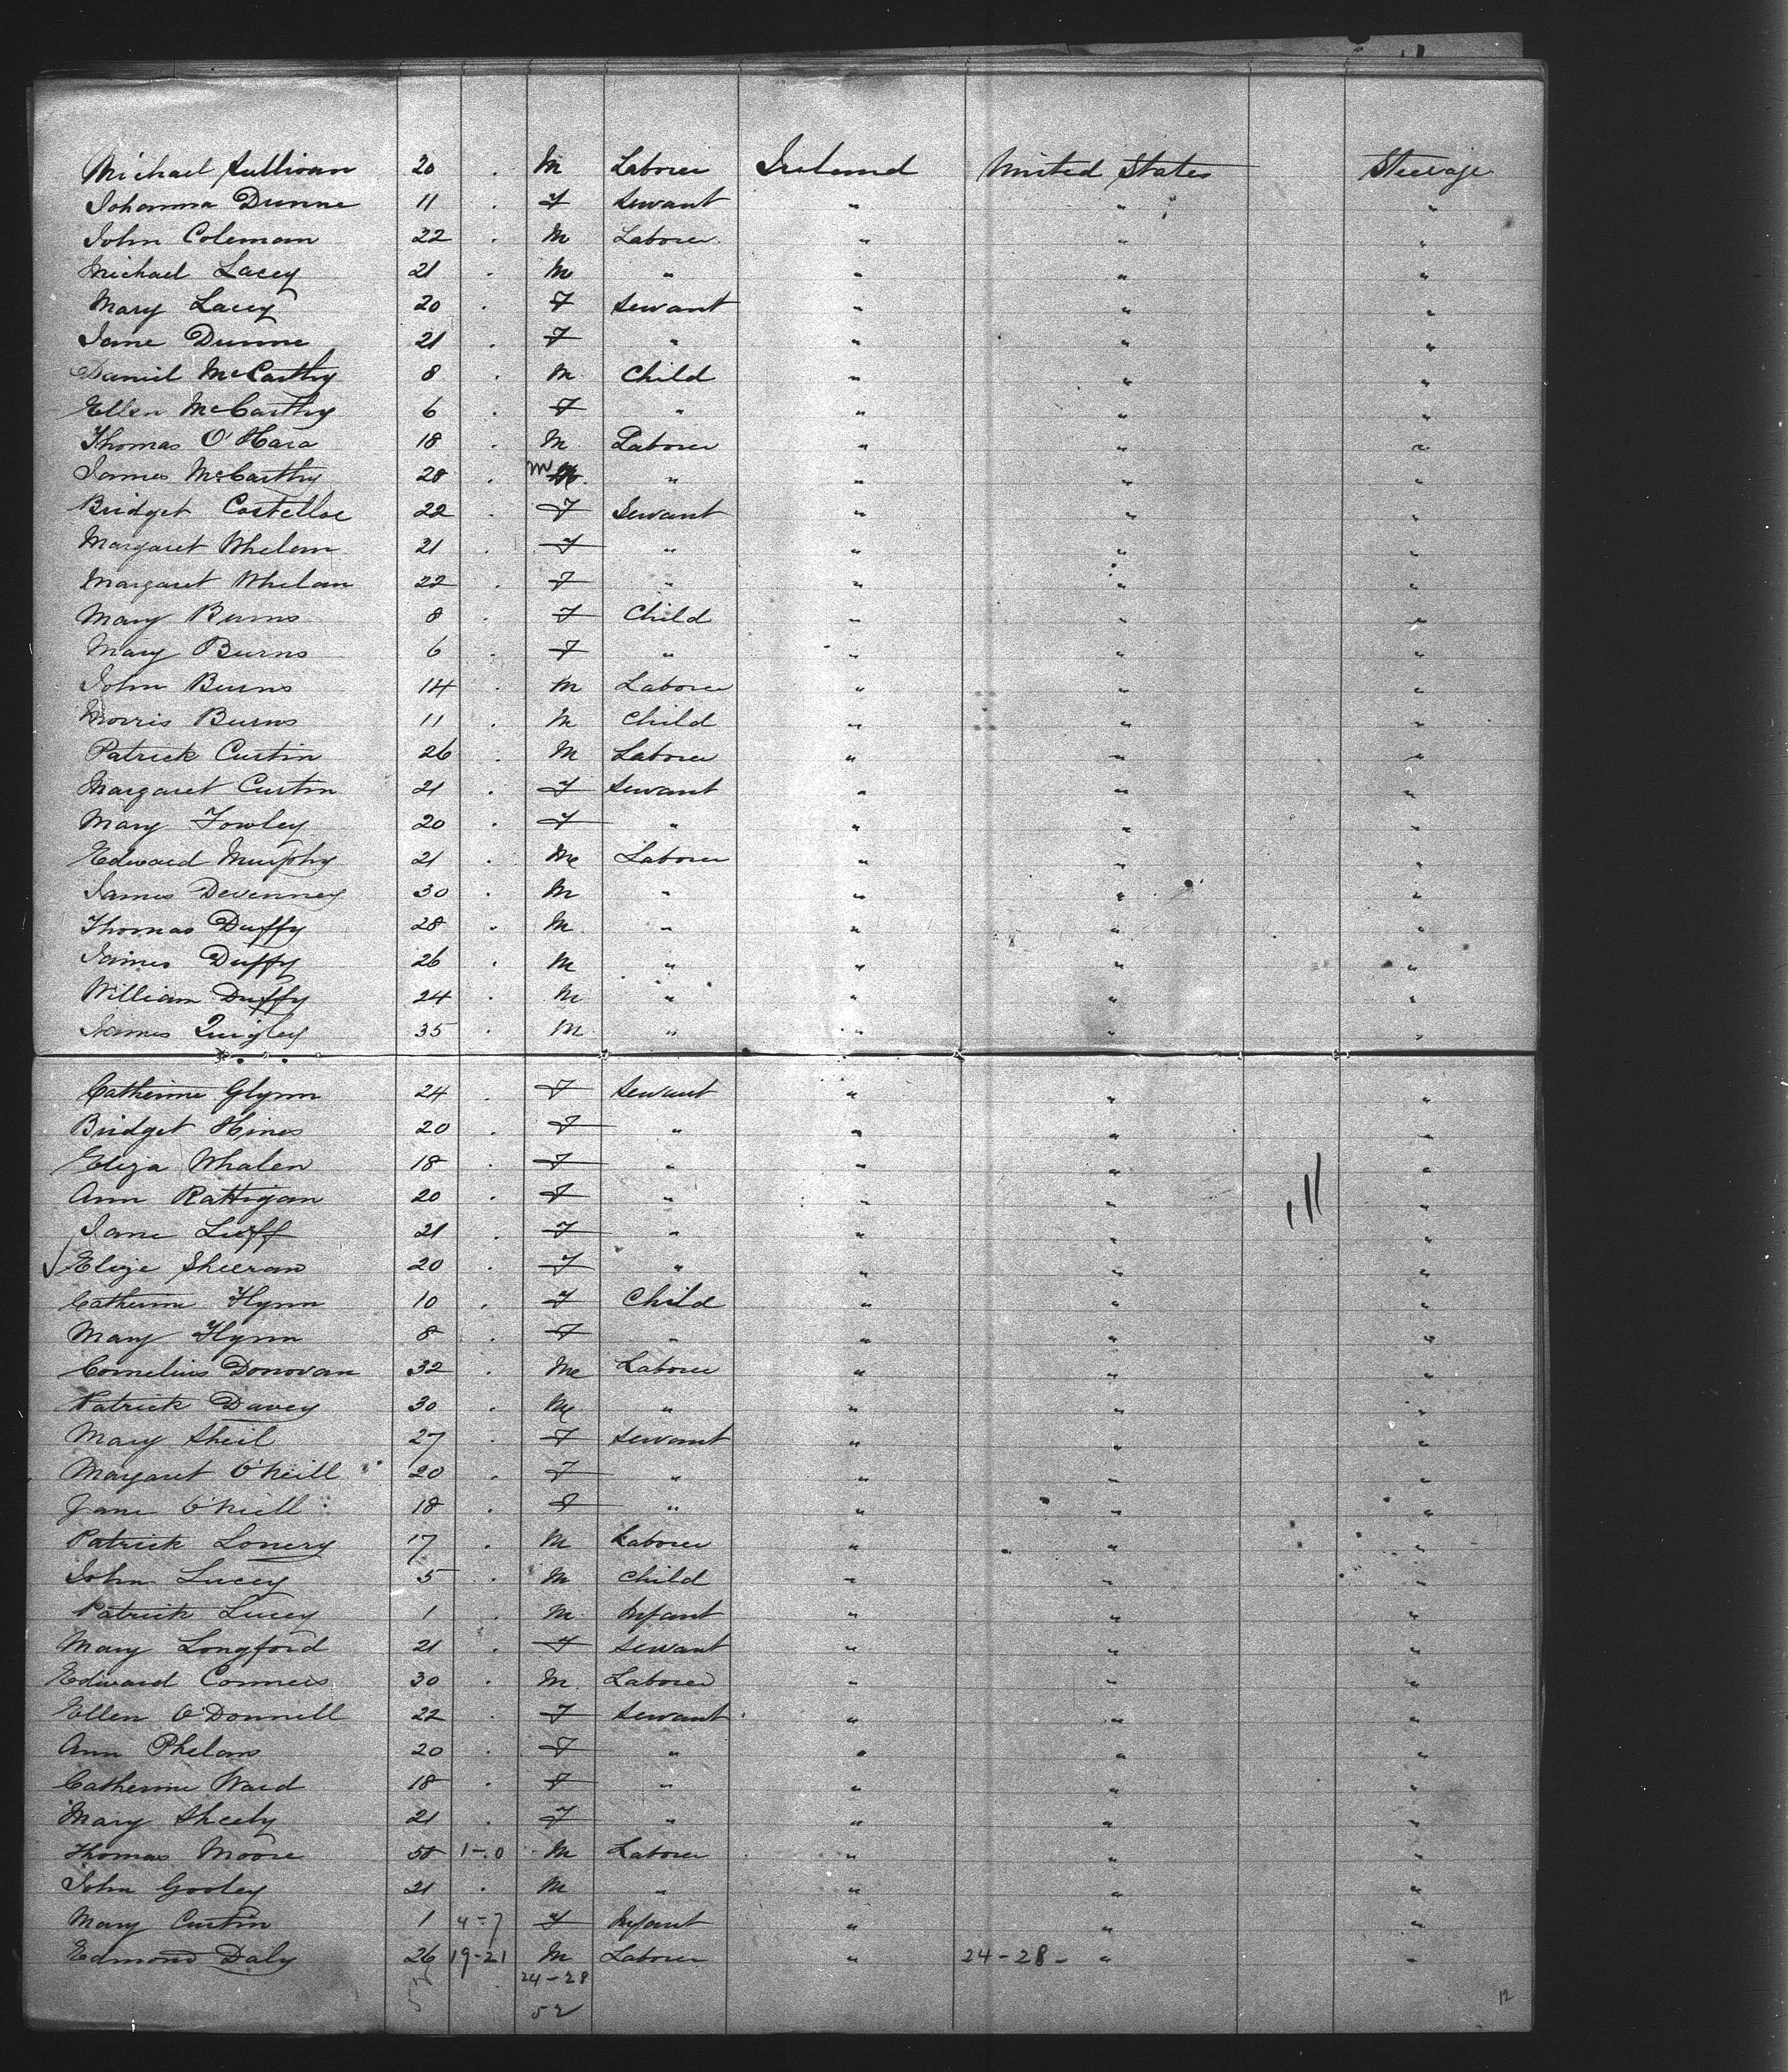 Michael Sullivan 20 . M Laborer Ireland United States Steerage
Johanna Dunne 11 . F Servant " " "
John Coleman 22 . M Laborer " " "
Michael Lacey 21 . M " " " "
Mary Lacey 20 . F Servant " " "
Jane Dunne 21 . F " " " "
Daniel McCarthy 8 . M Child " " "
Ellen McCarthy 6 . F " " " "
Thomas O'Hara 18 . M Laborer " " "
James McCarthy 28 . M " " " "
Bridget Costelloe 22 . F Servant " " "
Margaret Whelan 21 . F " " " "
Margaret Whelan 22 . F " " " "
Mary Burns 8 . F Child " " "
Mary Burns 6 . F " " " "
John Burns 14 . M Laborer " " "
Morris Burns 11 . M Child " " "
Patrick Curtin 26 . M Laborer " " "
Margaret Curtin 21 . F Servant " " "
Mary Fowley 20 . F " " " "
Edward Murphy 21 . M Laborer " " "
James Devenney 30 . M " " " "
Thomas Duffy 28 . M " " " "
James Duffy 26 . M " " " "
William Duffy 24 . M " " " "
James Quigley 35 . M " " " "
Catherine Glynn 24 . F Servant " " "
Bridget Hines 20 . F " " " "
Eliza Whalen 18 . F " " " "
Ann Rattigan 20 . F " " " "
Jane 21 . F " " " "
Eliza Sheeran 20 . F " " " "
Catherine Flynn 10 . F Child " " "
Mary Flynn 8 . F " " " "
Cornelius Donovan 32 . M Laborer " " "
Patrick Davey 30 . M " " " "
Mary Sheil 27 . F Servant " " "
Margaret O'Neill 20 . F " " " "
Jane O'Neill 18 . F " " " "
Patrick Lonery 17 . M Laborer " " "
John Lucey 5 . M Child " " "
Patrick Lucey 1 . M Infant " " "
Mary Longford 21 . F Servant " " "
Edward Conners 30 . M Laborer " " "
Ellen O'Donnell 22 . F Servant " " "
Ann Phelans 20 . F " " " "
Catherine Ward 18 . F " " " "
Mary Sheehy 21 . F " " " "
Thomas Moore 50 1-0 M Laborer " " "
John Gooley 21 . M " " " "
Mary Curtin 1 4-7 F Infant " " "
Edmond Daly 26 19-21 M Laborer " 24-28- " "
52 24-28
52
12